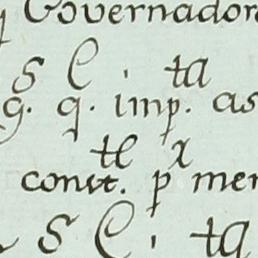 Governadora
S C i ta
g. q. imp. as
te x
convt. p men
S C i ta